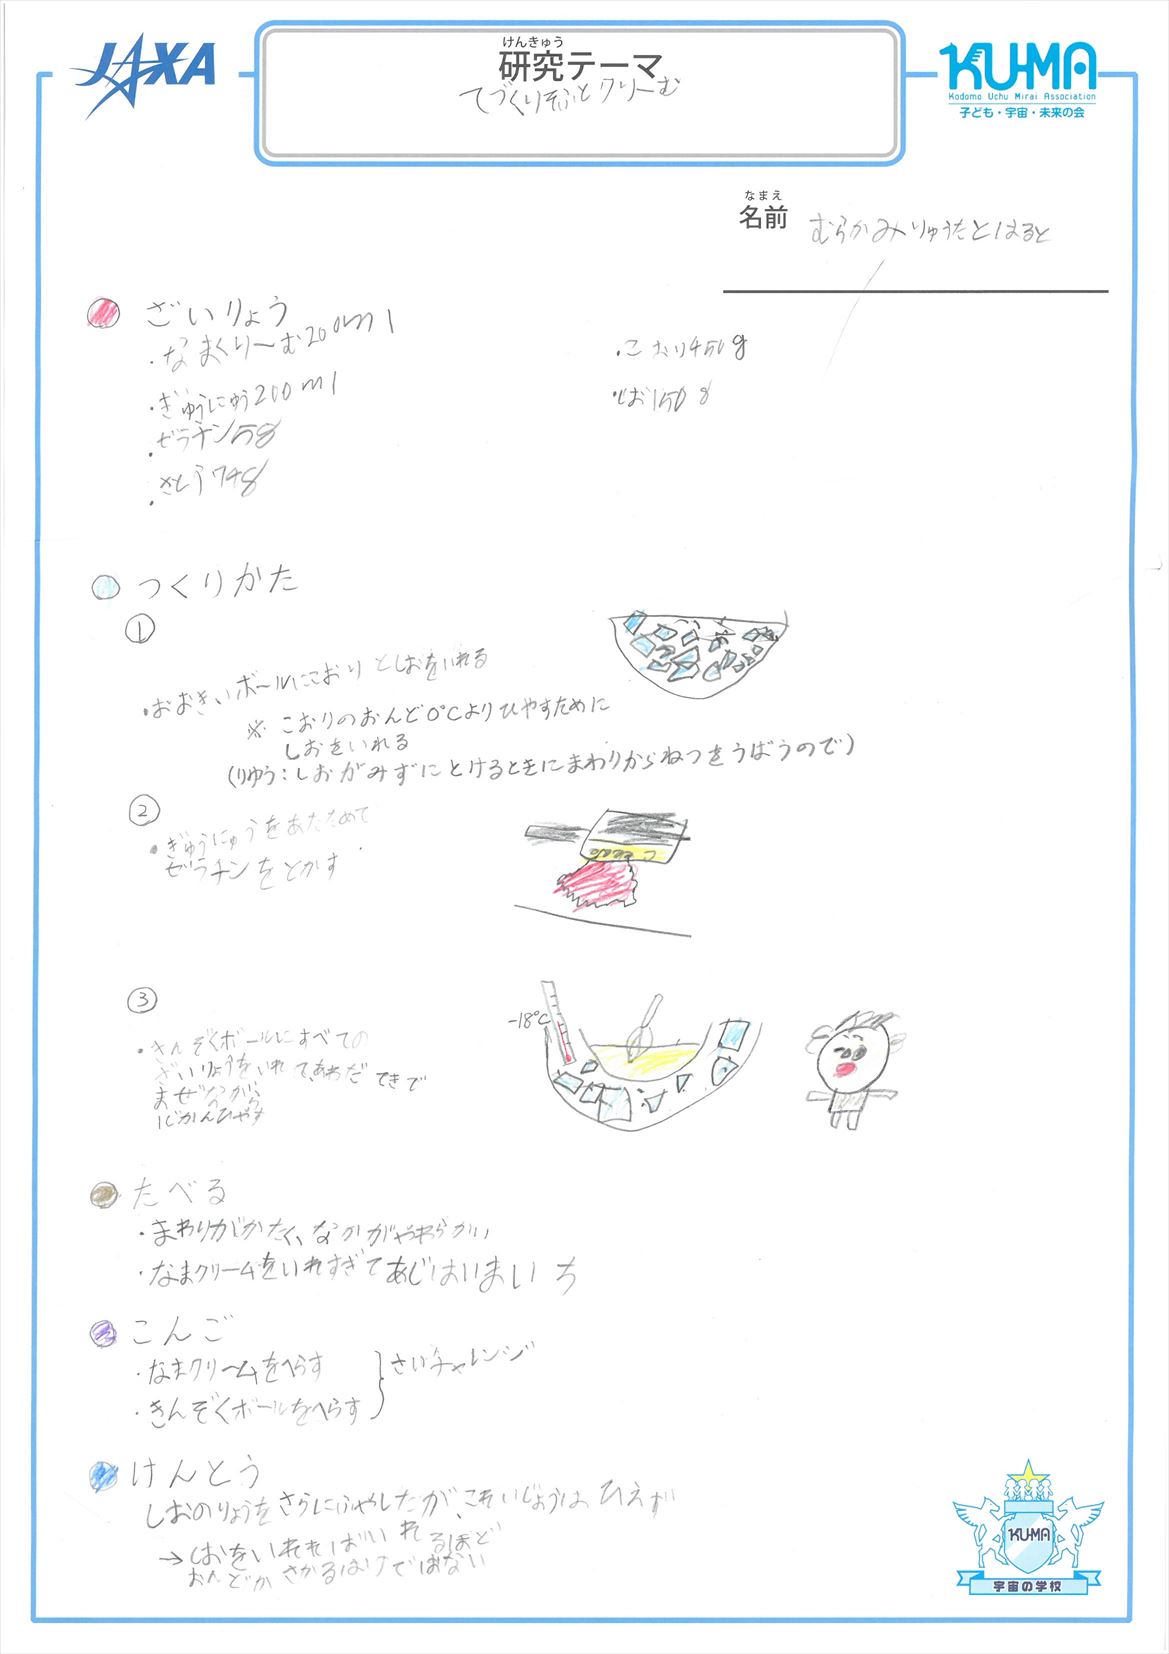 JAXA
けんきゅう
研究テーマ
てづくりそふとクリーむ
KU-MA
Kodomo Uchu Mirai Association
子ども・宇宙・未来の会
なまえ
名前
むらかみりゅうたとはると
ざいりょう
・なまくりーむ200ml
・ぎゅうにゅう200ml
・ゼラチン5g
・さとう74g
・こおり450g
・しお150g
つくりかた
①
・おおきいボールにこおりとしおをいれる
※ こおりのおんど0℃よりひやすために
しおをいれる
(りゆう:しおがみずにとけるときにまわりからねつをうばうので)
②
・ぎゅうにゅうをあたためて
ゼラチンをとかす
③
・きんぞくボールにすべての
ざいりょうをいれて、あわだてきで
まぜながら
1じかんひやす
-18℃
たべる
・まわりがかたく、なかがやわらかい
・なまクリームをいれすぎてあじはいまいち
こんご
・なまクリームをへらす
・きんぞくボールをへらす
さいチャレンジ
けんとう
しおのりょうをさらにふやしたが、これいじょうはひえず
→しおをいれればいれるほど
おんどがさがるわけではない
KU-MA
宇宙の学校